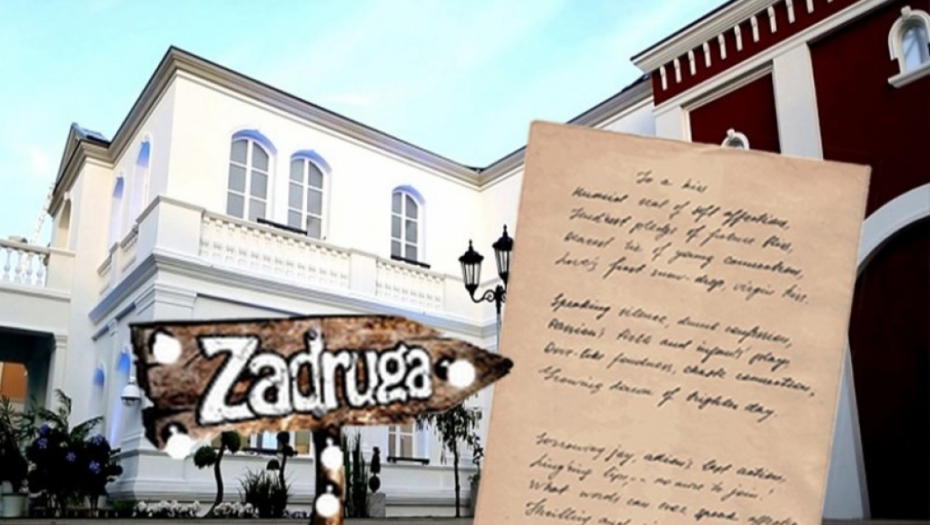 Zadruga
To a kiss
Humid seal of soft affections,
Tendrest pledge of future bliss,
Dearest tie of young connections,
Love's first snow-drop, virgin kiss.
Speaking silence, dumb confession,
Passion's birth and infant's play,
Dove-like fondness, chaste concession,
Glowing dawn of brighter day.
Sorrowing joy, adieu's last action,
Lingring lips, -- no more to join!
What words can ever speak affection
Thrilling and